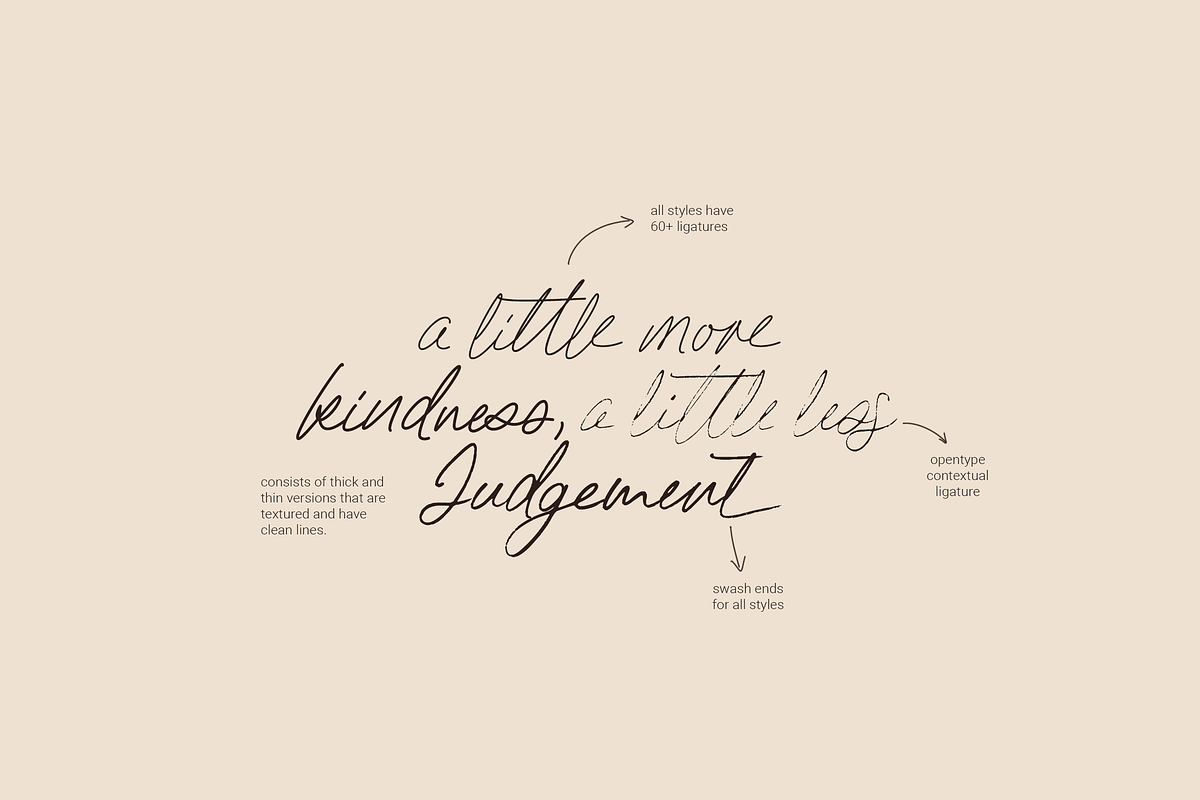 all styles have
60+ ligatures
a little more
kindness, a little less
Judgement
opentype
contextual
ligature
consists of thick and
thin versions that are
textured and have
clean lines.
swash ends
for all styles